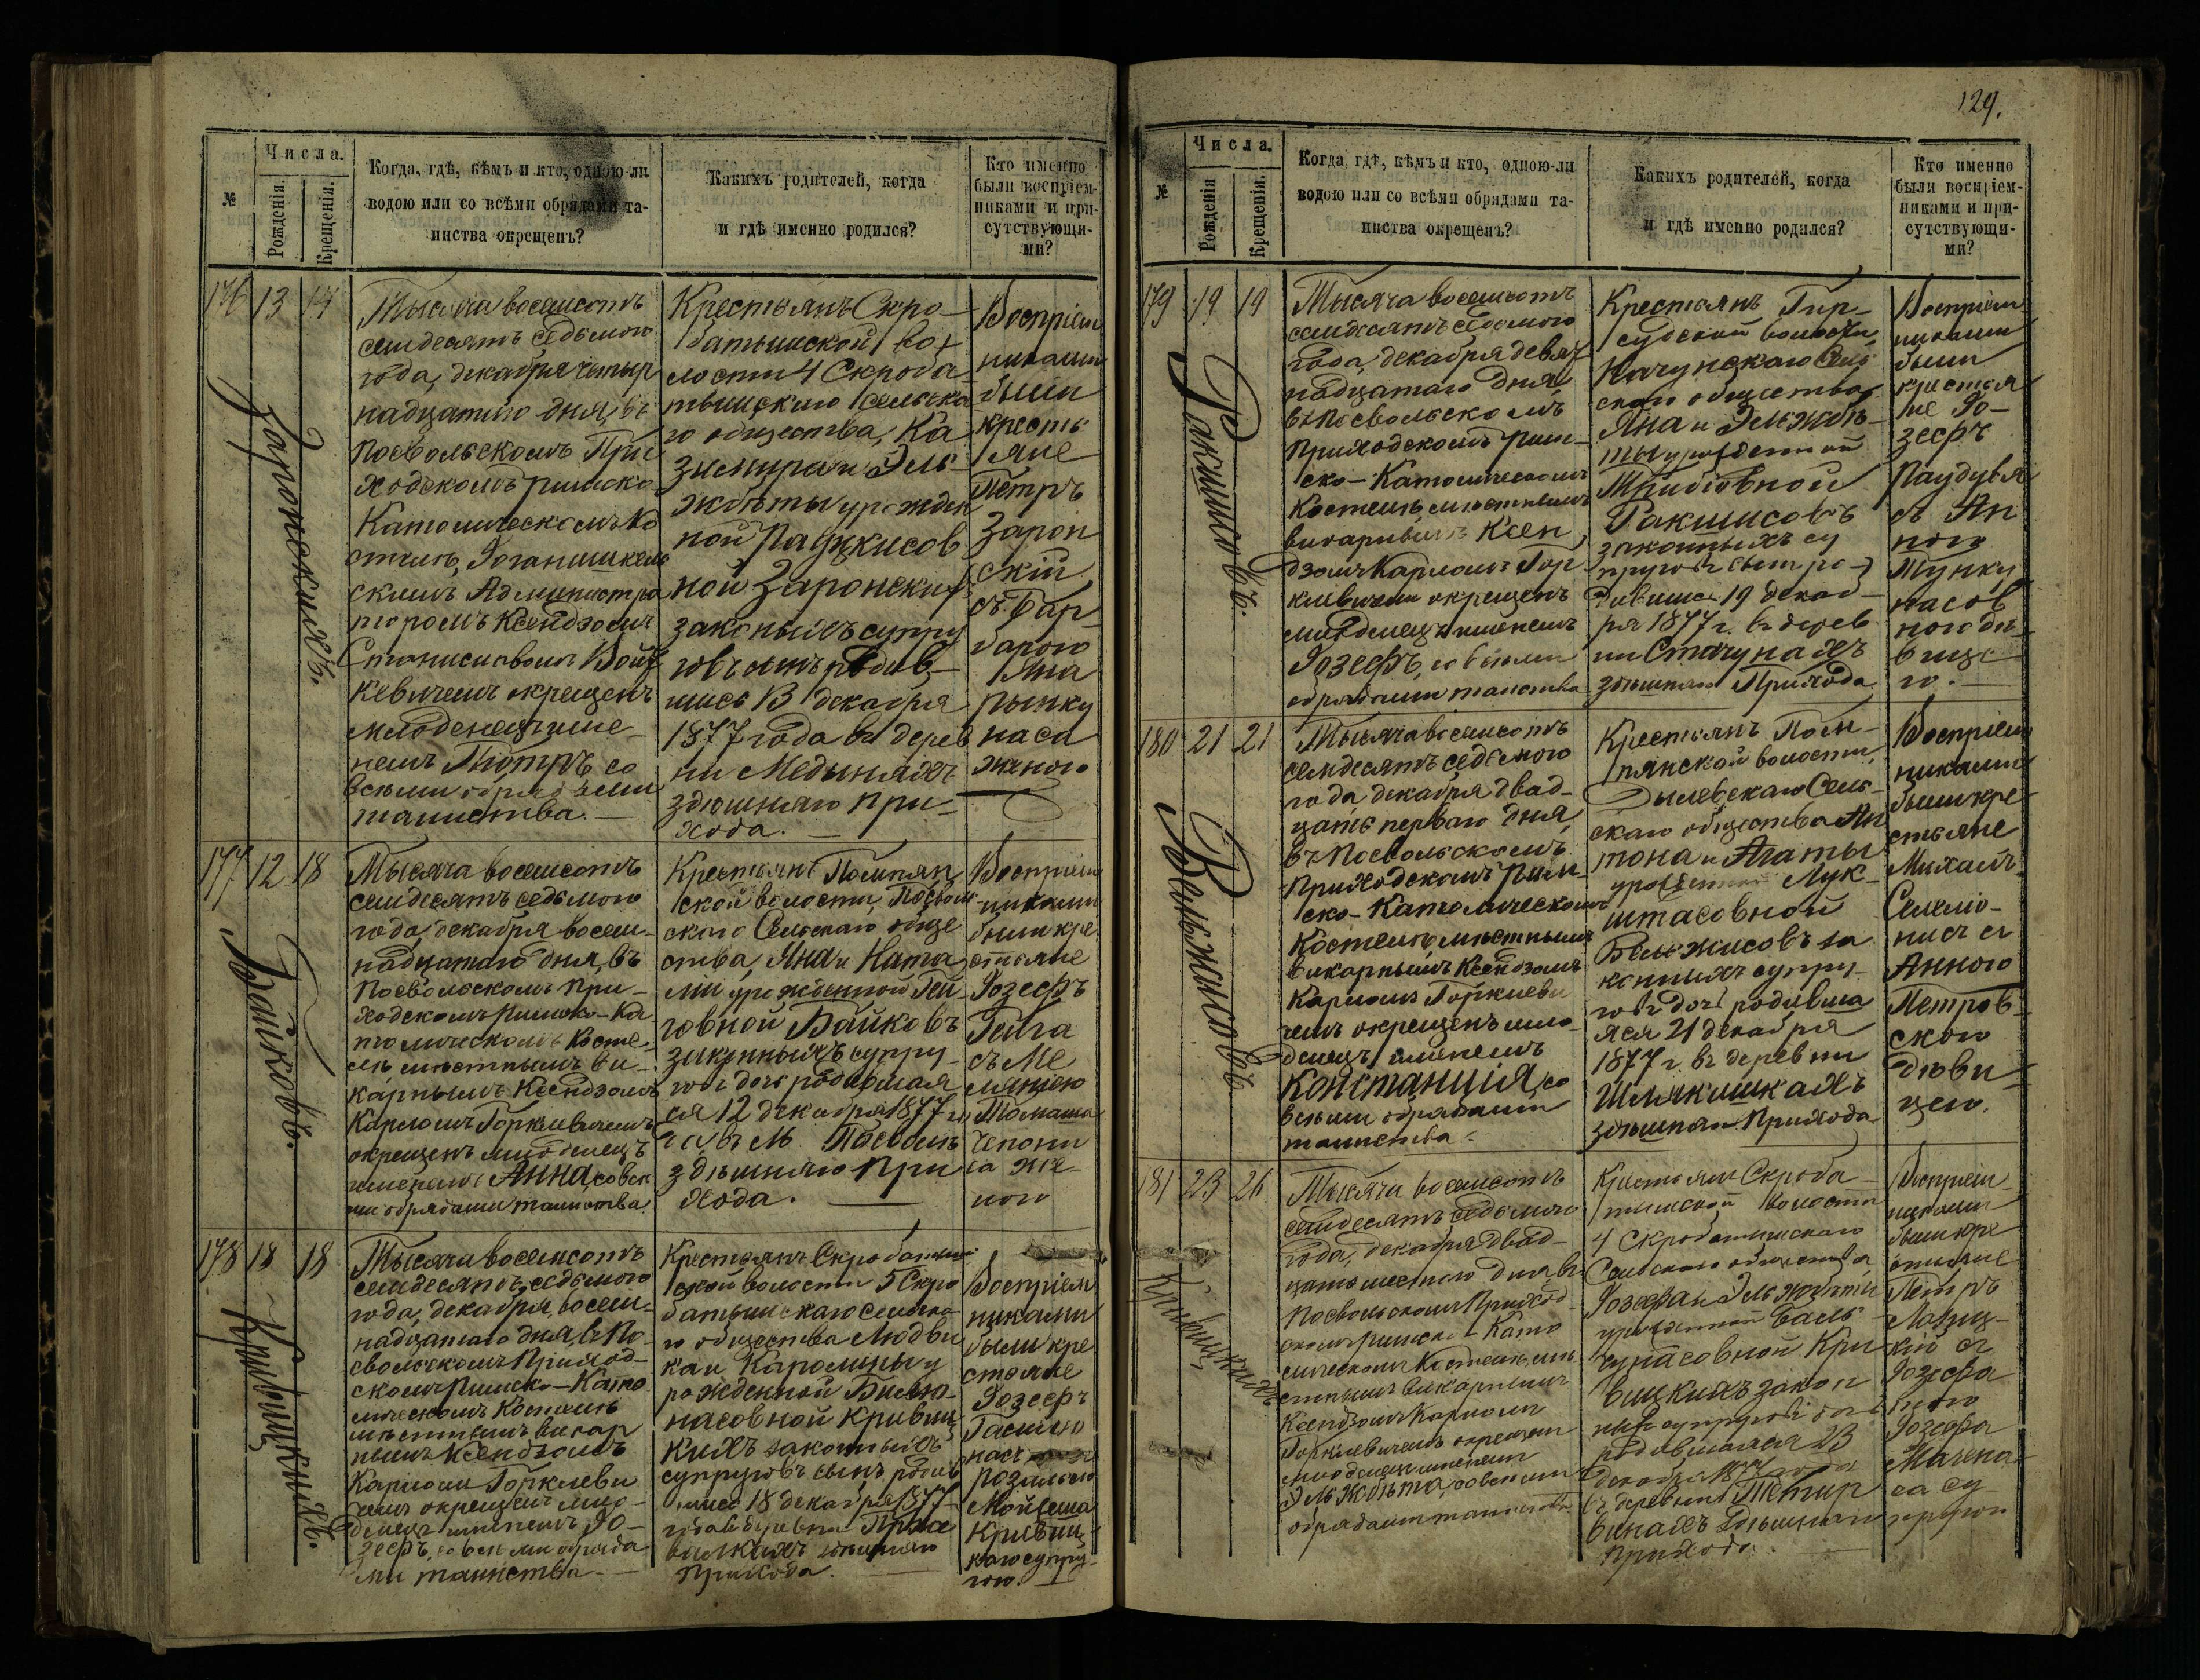 129.
№
Числа.
Рожденія.
Крещенія.
Когда, гдѣ, кѣмъ и кто, одною-ли
водою или со всѣми обрядами та-
инства окрещенъ?
Какихъ родителей, когда
и гдѣ именно родился?
Кто именно
были воспріем-
никами и при-
сутствующи-
ми?
176 13 14
Заронскихъ.
Тысяча восемсотъ
семдесятъ седьмого
года, декабря четыр
надцатаго дня, въ
Посвольскомъ При
ходскомъ римско
Католическомъ Ко
стелѣ, Іоганишкель
скимъ Администра
торомъ Ксендзомъ
Станиславомъ Войт
кевичемъ окрещенъ
младенецъ име-
немъ Піотръ со
всѣми обрядами
таинства.
Крестьянъ Скро-
батышской во-
лости 4 Скроба-
тышскаго сельска
го общества, Ка
зимира и Эль-
жбѣты урожден
ной Пацукисов
ной Заронскихъ
законыхъ супру
говъ сынъ родив-
шись 13 декабря
1877 года въ дерев
ни Медынахъ
здѣшняго При-
хода.
Воспріем
никами
были
кресть
яне
Петръ
Зарон
скій
съ Бар-
барою
Яна
Рынку
наса
женою
177 12 18
Байковъ.
Тысяча восемсотъ
семдесятъ седьмого
года, декабря восем-
надцатаго дня, въ
Посвольскомъ При-
ходскомъ Римско-Ка
толическомъ Косте
лѣ мѣстнымъ Ви-
карнымъ Ксендзомъ
Карломъ Горкевичемъ
окрещенъ младенецъ
именемъ Анна, со всѣ
ми обрядами таинства.
Крестьянъ Помпян
ской волости, Посволь
скаго Сельскаго обще
ства, Яна и Ната
ліи урожденной Гей-
говной Байковъ
законныхъ супру-
говъ дочь родившая
ся 12 декабря 1877 го
да, въ м. Посволѣ
здѣшняго При
хода.
Воспріем
никами
были кре
стьяне
Іозефъ
Гейга
съ Ме
ляніею
Томаша
Чепони
са же-
ною
178 18 18
Кривицкихъ.
Тысяча восемсотъ
семдесятъ седьмого
года, декабря, восем-
надцатаго дня, въ По-
свольскомъ Приход-
скомъ Римско-Като
лическомъ Костелѣ
мѣстнымъ викар
нымъ Ксендзомъ
Карломъ Горкеви
чемъ окрещенъ мла-
денецъ именемъ Іо-
зефъ, со всѣми обряда
ми таинства.
Крестьянъ Скробатыш
ской волости 5 Скро
батышскаго Сельска
го общества Людви
ка и Каролины у
рожденной Билю-
насовной Кривиц
кихъ законныхъ
супруговъ сынъ родив
шись 18 декабря 1877
года въ деревни
здѣшняго
Прихода.
Воспріем
никами
были кре
стьяне
Іозефъ
съ
Розалією
Мойжеша
Кривиц
каго супру-
гою.
№
Числа.
Рожденія
Крещенія.
Когда, гдѣ, кѣмъ и кто, одною-ли
водою или со всѣми обрядами та-
инства окрещенъ?
Какихъ родителей, когда
и гдѣ именно родился?
Кто именно
были воспріем-
никами и при-
сутствующи-
ми?
179 19 19
Ракшисовъ.
Тысяча восемсотъ
семдесятъ седьмого
года, декабря девят
надцатаго дня,
въ Посвольскомъ
Приходскомъ Рим-
ско-Католическомъ
Костелѣ мѣстнымъ
викарнымъ Ксен
дзомъ Карломъ Гор
кевичемъ окрещенъ
младенецъ именемъ
Іозефъ, со всѣми
обрядами таинства
Крестьянъ
волости,
Начунскаго Сель
скаго общества
Яна и Эльжбѣ-
ты урожденной
Ракшисовъ
законныхъ су
пруговъ сынъ ро-
дившись 19 декаб-
ря 1877 г. въ дерев
ни Стачунахъ
здѣшняго Прихода.
Воспріем
никами
были
крестья
не Іо-
зефъ
съ Ан
ною
насов
ною дѣ-
вице
ю.
180 21 21
Вельжисовъ.
Тысяча восемсотъ
семдесятъ седьмого
года декабря двад-
цать перваго дня
въ Посвольскомъ
Приходскомъ Рим-
ско-Католическомъ
Костелѣ мѣстнымъ
викарнымъ Ксендзомъ
Карломъ Горкеви
чемъ окрещенъ мла-
денецъ именемъ
Констанція, со
всѣми обрядами
таинства.
Крестьянъ Пом-
пянской волости,
Сель-
скаго общества Ан
тона и Агаты
урожденной Мук-
штасовной
Бельжисовъ за
конныхъ супру-
говъ дочь родивша
яся 21 декабря
1877 г. въ деревни
Шлякишкахъ
здѣшняго Прихода.
Воспріем
никами
были кре
стьяне
Михаилъ
съ
Анною
Петров
скою
дѣви
цею.
181 23 26
Кривицкихъ
Тысяча восемсотъ
семдесятъ седьмого
года, декабря двад-
цать шестого дня, въ
Посвольскомъ Приход
скомъ Римско-Като
лическомъ Костелѣ, мѣ
стнымъ викарнымъ
Ксендзомъ Карломъ
Горкевичемъ окрещенъ
младенецъ именемъ
Эльжбѣта, со всѣми
обрядами таинства
Крестьянъ Скроба-
тышской волости
4 Скробатышскаго
Сельскаго общества
Іозефа и Эльжбѣты
урожденной
Кри
вицкихъ закон
ныхъ супруговъ дочь
родившаяся 23
декабря 1877 года
въ деревни
здѣшняго
Прихода.
Воспріем
никами
были кре
стьяне
Петръ
съ
Іозефа
тою
Іозефа
са су
пругою